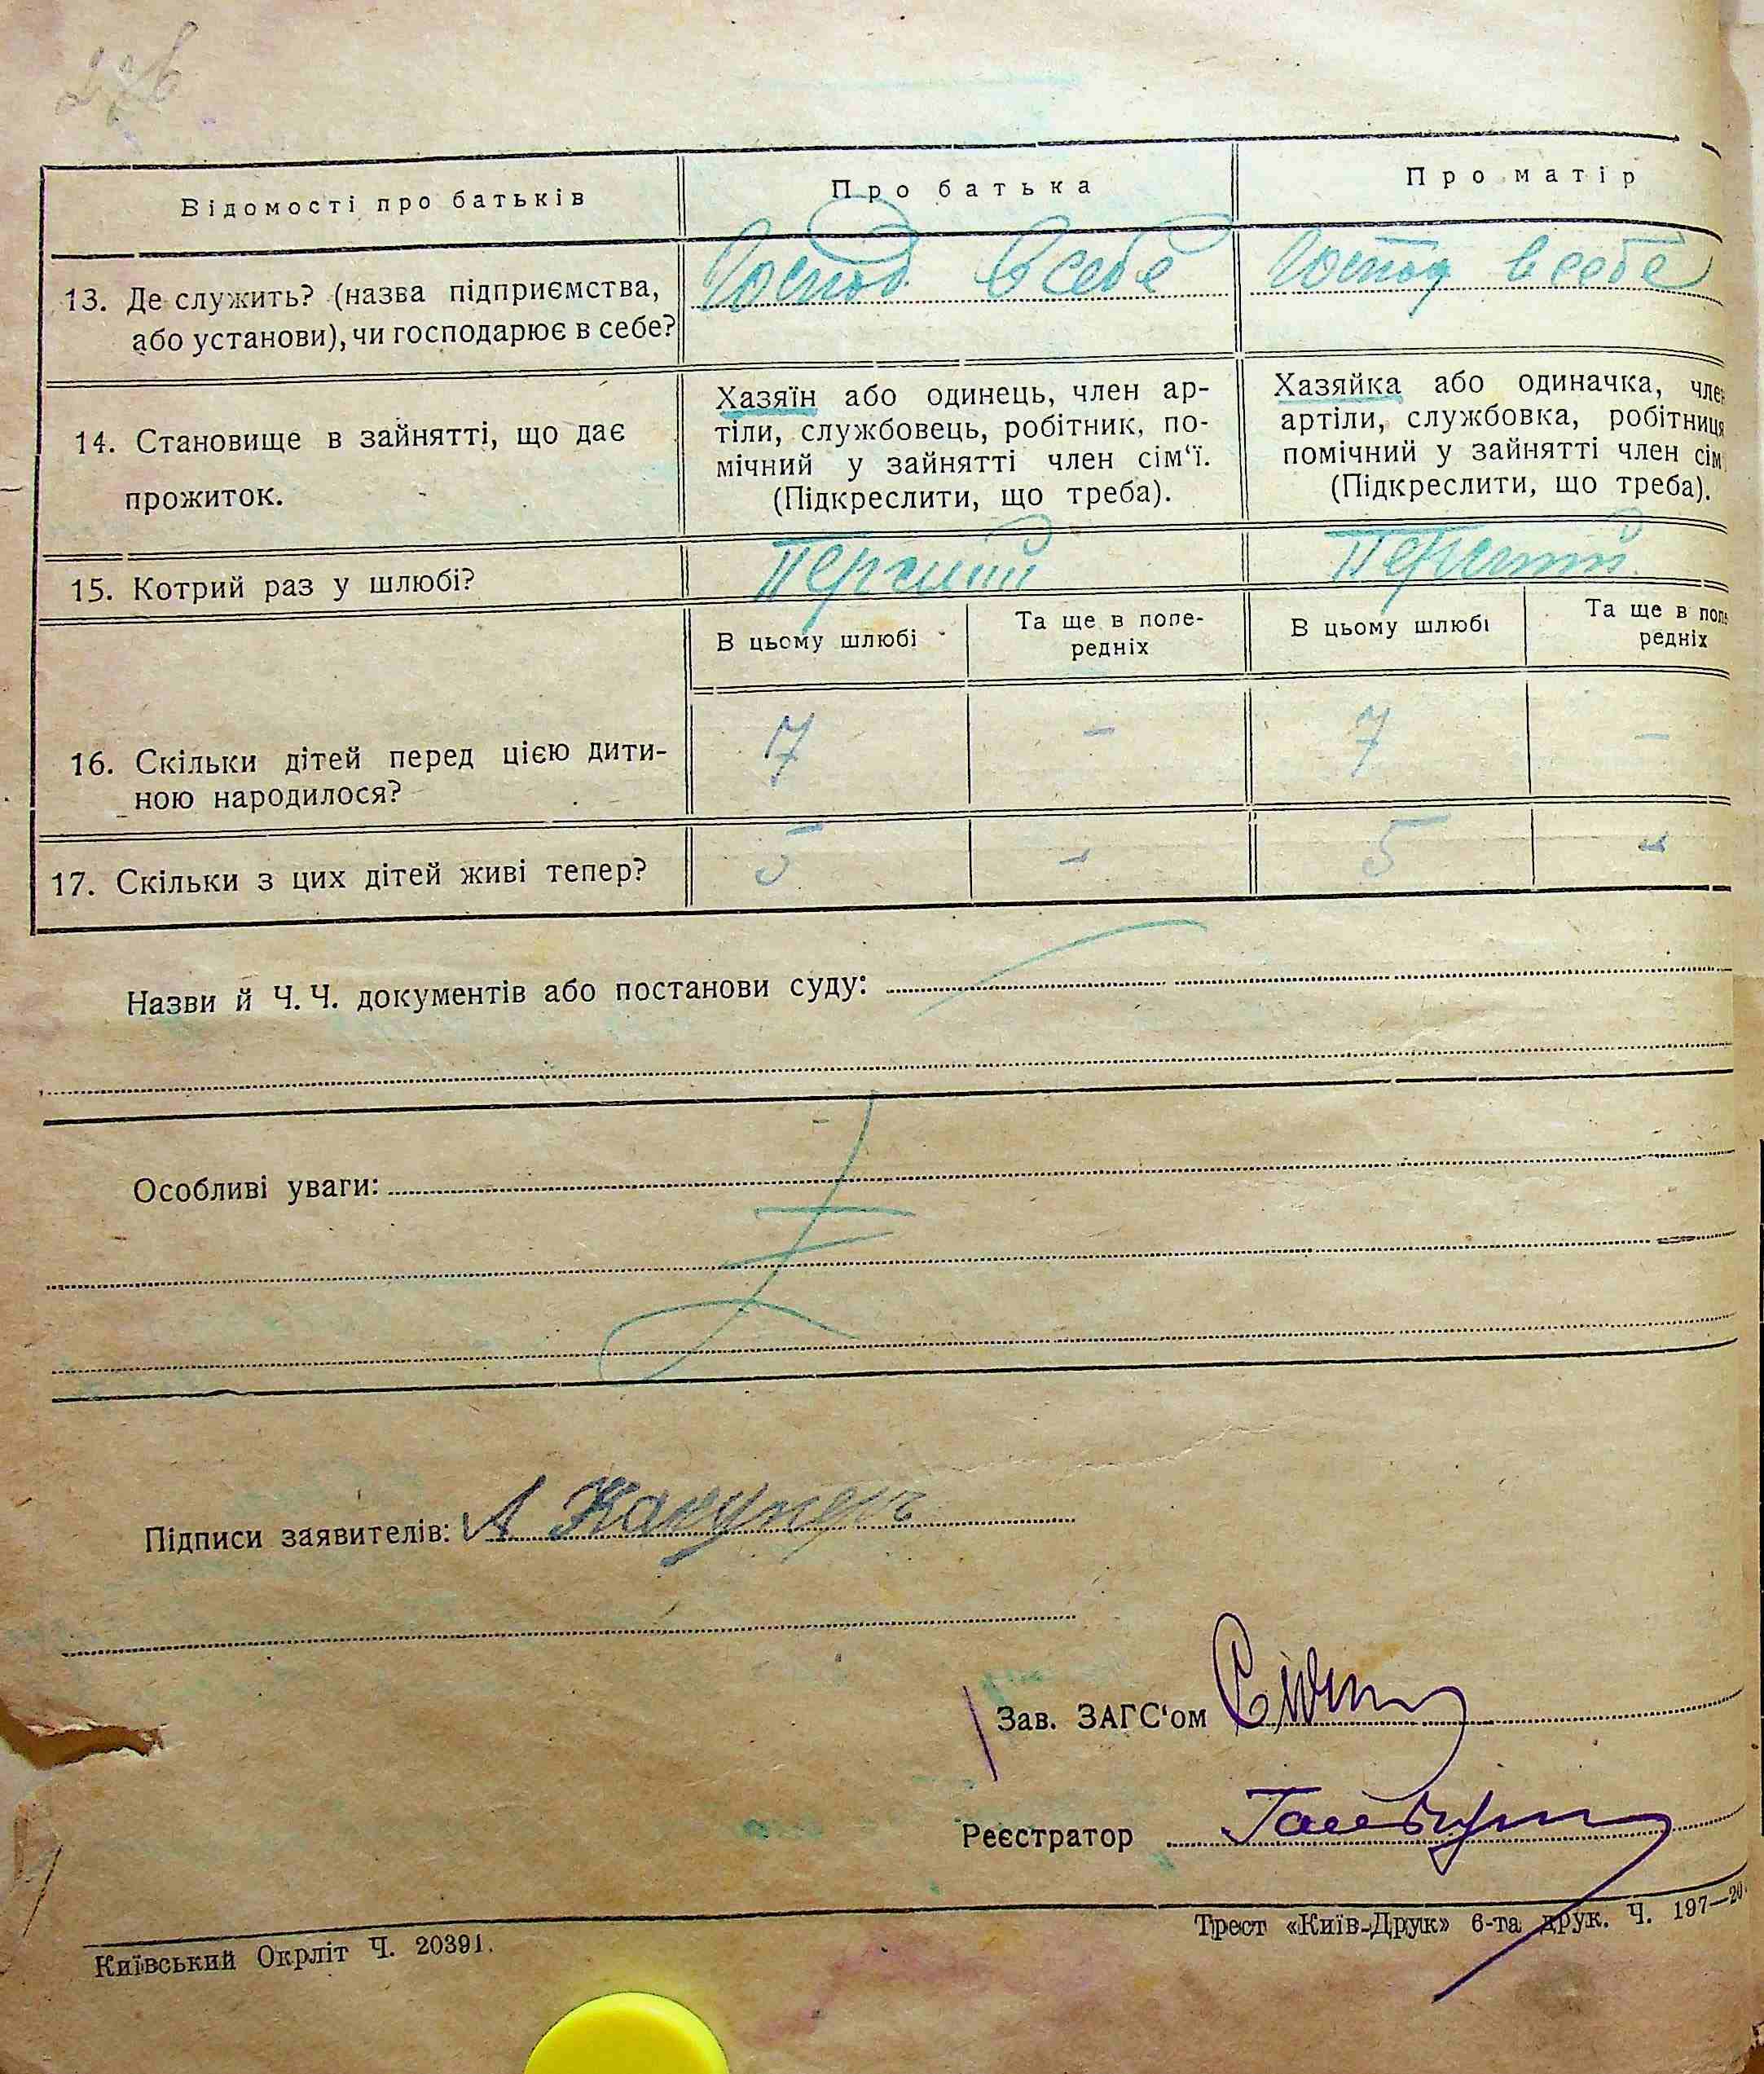 276
Відомості про батьків
Про батька
Про матір
13. Де служить? (назва підприємства,
або установи), чи господарює в себе?
Господ. в себе
Господ в себе
14. Становище в зайнятті, що дає
прожиток.
Хазяїн або одинець, член ар-
тіли, службовець, робітник, по-
мічний у зайнятті член сім‘ї.
(Підкреслити, що треба).
Хазяйка або одиначка, член
артіли, службовка, робітниця
помічний у зайнятті член сім
(Підкреслити, що треба).
15. Котрий раз у шлюбі?
Перший
Перший
В цьому шлюбі
Та ще в попе-
редніх
В цьому шлюбі
Та ще в попе
редніх
16. Скільки дітей перед цією дити-
ною народилося?
7 – 7 –
17. Скільки з цих дітей живі тепер?
5 – 5 –
Назви й Ч. Ч. документів або постанови суду:
Особливі уваги:
Підписи заявителів: А
Зав. ЗАГС‘ом
Реєстратор
Київський Окрліт Ч. 20391.
Трест «Київ-Друк» 6-та друк. Ч. 197—20